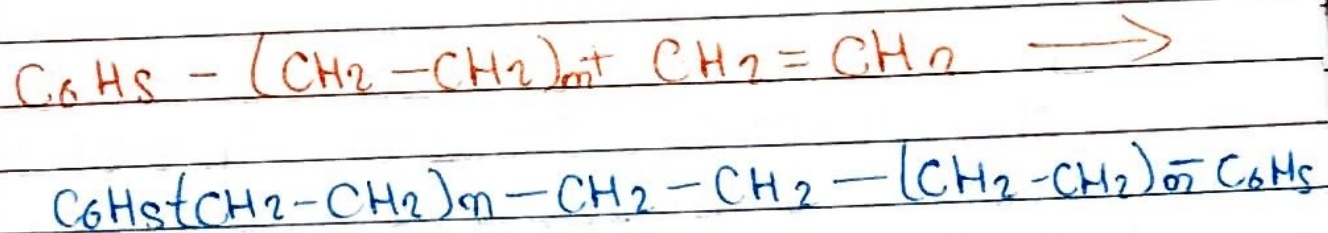 C6H5 - (CH2 - CH2)n + CH2 = CH2 ⟶
C6H5+(CH2-CH2)n - CH2 - CH2 - (CH2-CH2)n - C6H5